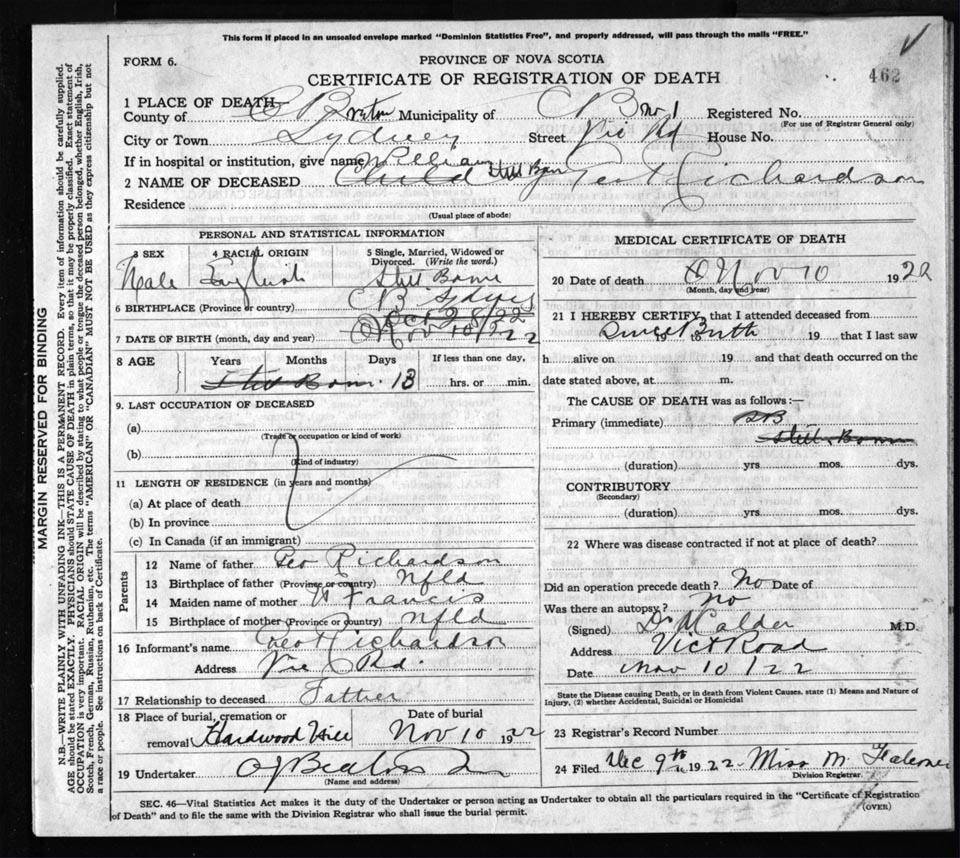 This form if placed in an unsealed envelope marked "Dominion Statistics Free", and properly addressed, will pass through the mails "FREE."
FORM 6.
PROVINCE OF NOVA SCOTIA
CERTIFICATE OF REGISTRATION OF DEATH
462
1 PLACE OF DEATH
County of C Breton Municipality of C B No 1 Registered No.
(For use of Registrar General only)
City or Town Sydney Street Vic Rd House No.
If in hospital or institution, give name
William
2 NAME OF DECEASED Child Still Born Geo Richardson
Residence
(Usual place of abode)
PERSONAL AND STATISTICAL INFORMATION
3 SEX 4 RACIAL ORIGIN 5 Single, Married, Widowed or Divorced. (Write the word.)
Male English Still Born
6 BIRTHPLACE (Province or country) C B Sydney
Oct 28/22
7 DATE OF BIRTH (month, day and year) Nov 10/22
8 AGE Years Months Days If less than one day,
Still Born 13 hrs. or min.
9. LAST OCCUPATION OF DECEASED
(a)
(Trade or occupation or kind of work)
(b)
(Kind of industry)
11 LENGTH OF RESIDENCE (in years and months)
(a) At place of death
(b) In province
(c) In Canada (if an immigrant)
Parents
12 Name of father Geo Richardson
13 Birthplace of father (Province or country) Nfld
14 Maiden name of mother Francis
15 Birthplace of mother (Province or country) Nfld
16 Informant's name Geo Richardson
Address Vic Rd.
17 Relationship to deceased Father
18 Place of burial, cremation or removal Hardwood Hill
Date of burial Nov 10 1922
19 Undertaker
(Name and address)
MEDICAL CERTIFICATE OF DEATH
20 Date of death Nov 10 1922
(Month, day and year)
21 I HEREBY CERTIFY, that I attended deceased from
Birth 19 to 19 that I last saw
h alive on 19 and that death occurred on the
date stated above, at m.
The CAUSE OF DEATH was as follows:—
Primary (immediate) SB
Still Born
(duration) yrs mos. dys.
CONTRIBUTORY
(Secondary)
(duration) yrs. mos. dys.
22 Where was disease contracted if not at place of death?
Did an operation precede death? No Date of
Was there an autopsy? No
(Signed) D Calder M.D.
Address Vict Road
Date Nov 10/22
State the Disease causing Death, or in death from Violent Causes, state (1) Means and Nature of
Injury, (2) whether Accidental, Suicidal or Homicidal
23 Registrar's Record Number
24 Filed Dec 9th 1922 Miss M Falconer
Division Registrar.
SEC. 46—Vital Statistics Act makes it the duty of the Undertaker or person acting as Undertaker to obtain all the particulars required in the "Certificate of Registration
of Death" and to file the same with the Division Registrar who shall issue the burial permit.
(OVER)
MARGIN RESERVED FOR BINDING
N.B.—WRITE PLAINLY WITH UNFADING INK—THIS IS A PERMANENT RECORD. Every item of information should be carefully supplied.
AGE should be stated EXACTLY. PHYSICIANS should STATE CAUSE OF DEATH in plain terms, so that it may be properly classified. Exact statement of
OCCUPATION is very important. RACIAL ORIGIN will be described by stating to what people or tongue the deceased person belonged, whether English, Irish,
Scotch, French, German, Russian, Ruthenian, etc. The terms "AMERICAN" OR "CANADIAN" MUST NOT BE USED as they express citizenship but not
a race or people. See instructions on back of Certificate.